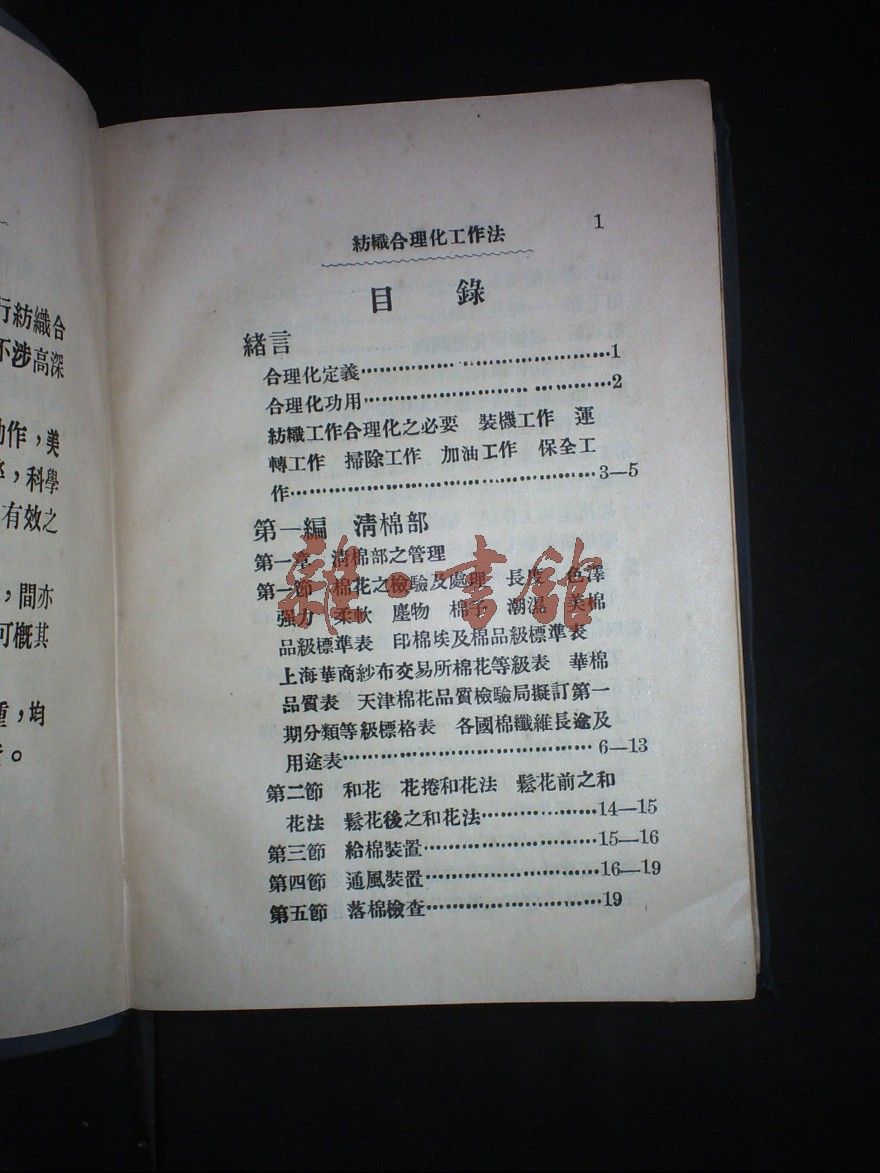 行紡織合
不涉高深
動作，美
，科學
有效之
，間亦
可概其
重，均
。
紡織合理化工作法
1
目錄
緒言
合理化定義……………………………1
合理化功用……………………………2
紡織工作合理化之必要 裝機工作 運
轉工作 掃除工作 加油工作 保全工
作……………………………3—5
第一編 清棉部
第一章 清棉部之管理
第一節 棉花之檢驗及處理 長度 色澤
强力 柔軟 塵物 棉子 潮濕 美棉
品級標準表 印棉埃及棉品級標準表
上海華商紗布交易所棉花等級表 華棉
品質表 天津棉花品質檢驗局擬訂第一
期分類等級標格表 各國棉纖維長途及
用途表……………………………6—13
第二節 和花 花捲和花法 鬆花前之和
花法 鬆花後之和花法………………14—15
第三節 給棉裝置……………………15—16
第四節 通風裝置……………………16—19
第五節 落棉檢查……………………19
雜·書館